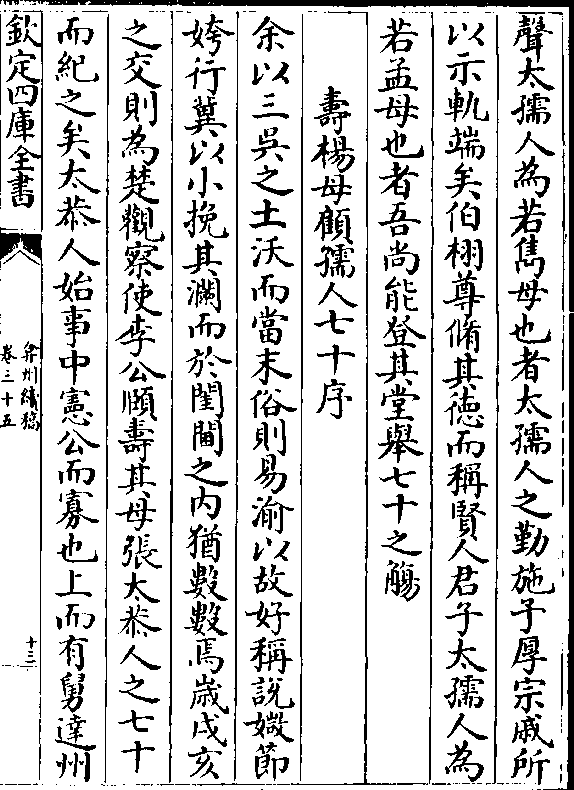 聲太孺人為若雋母也者太孺人之勤施于厚宗戚所
以示軌端矣伯栩尊脩其徳而稱賢人君子太孺人為
若孟母也者吾尚能登其堂舉七十之觴
壽楊母顧孺人七十序
余以三吳之土沃而當末俗則易渝以故好稱說媺節
姱行冀以小挽其瀾而於閨閫之内猶數數焉歲戊亥
之交則為楚觀察使李公頤壽其母張太恭人之七十
而紀之矣太恭人始事中憲公而寡也上而有舅達州
欽定四庫全書
弇州續稿
卷三十五
十三